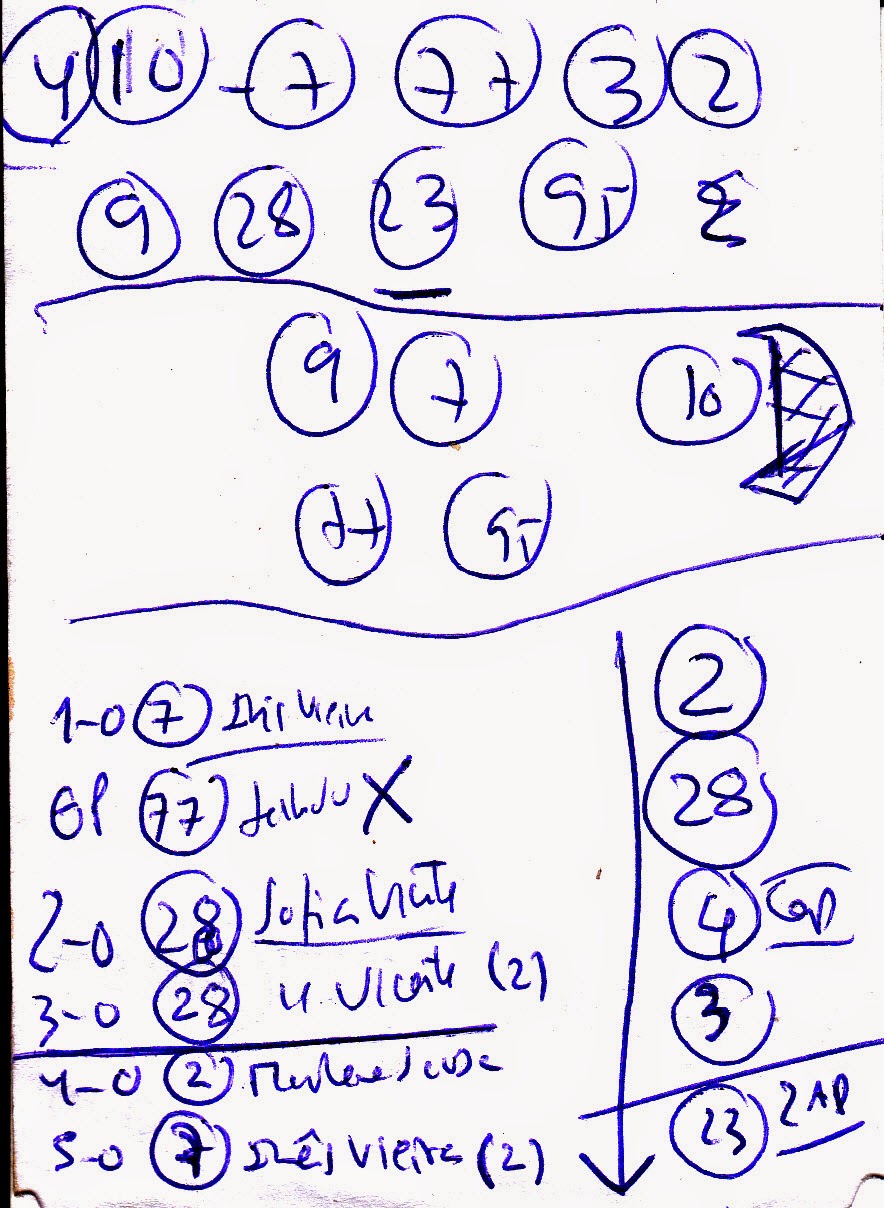 4 10 7 77 3 2
9 28 23 95
9 7 10
77 95
1-0 7 Inês Vieira
77 X
2-0 28 Sofia Vicente
3-0 28 Vicente (2)
4-0 2
5-0 7 Inês Vieira (2)
2
28
4 CAP
3
23 2AP